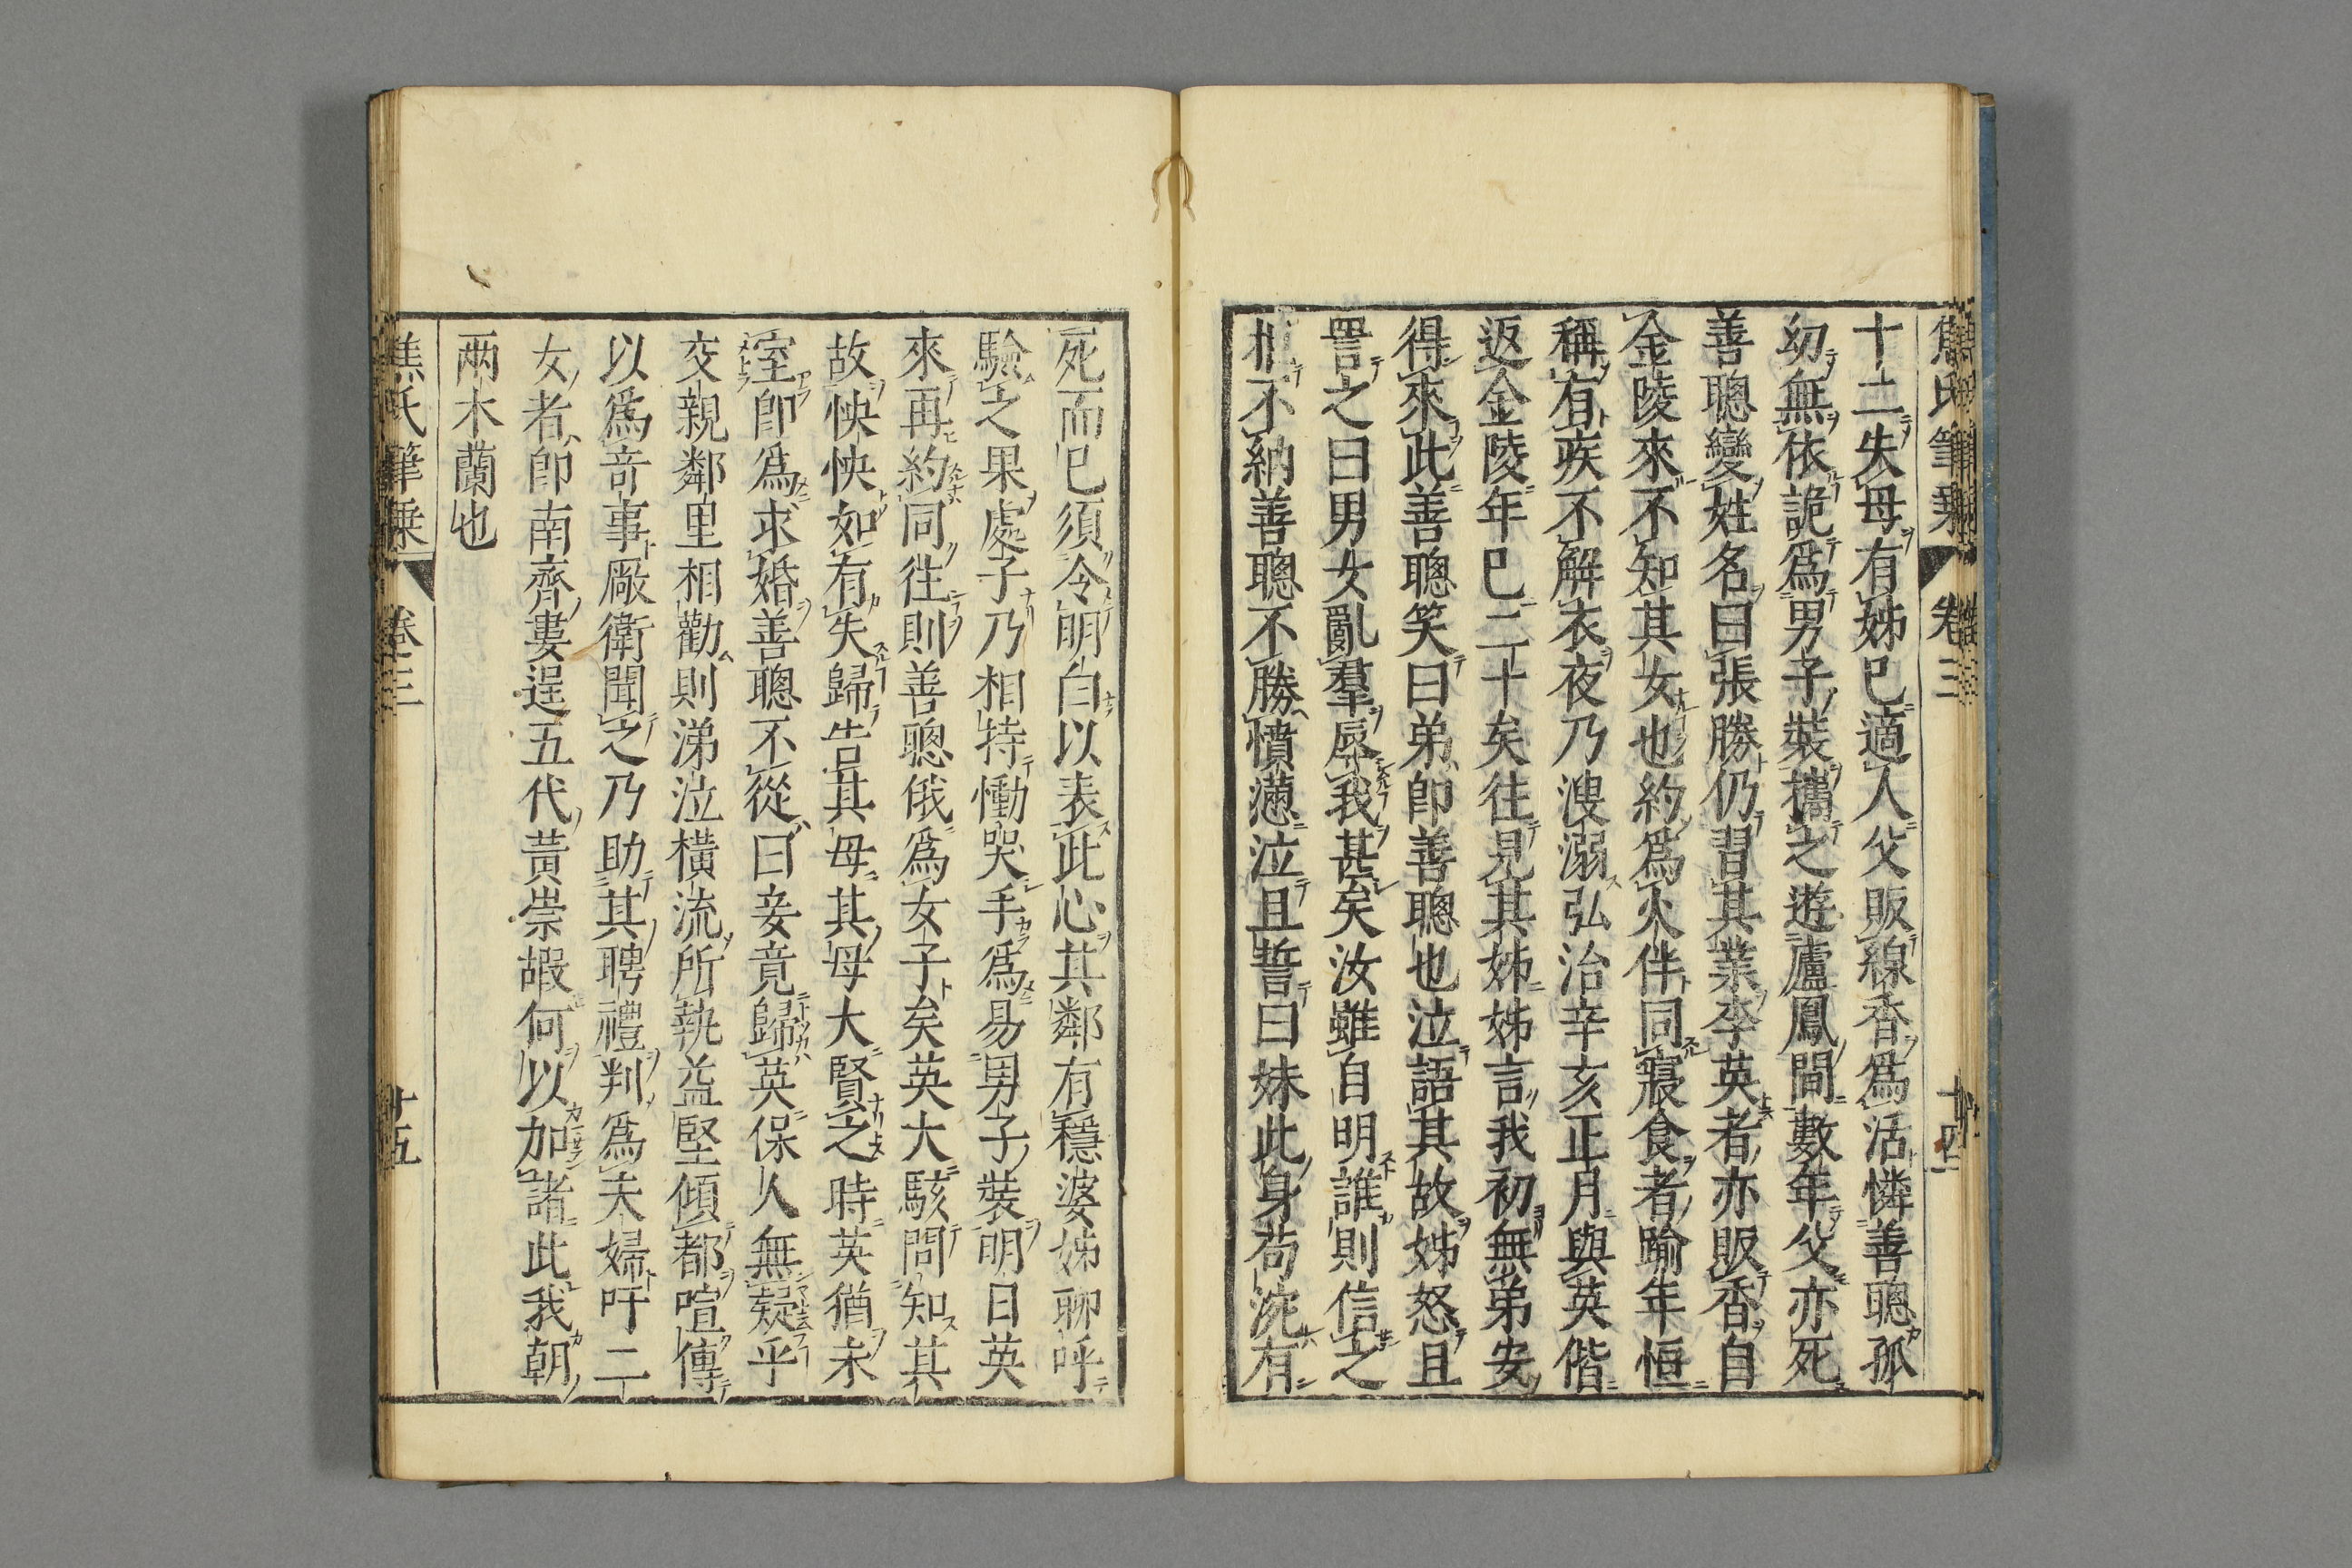 焦氏筆乘 卷三 十四
十二失母有姊已適人父販線香爲活憐善聰孤
幼無依詭爲男子裝攜之遊廬鳳間數年父亦死
善聰變姓名曰張勝仍習其業李英者亦販香自
金陵來不知其女也約爲火伴同寢食者踰年恒
稱有疾不解衣夜乃溲溺弘治辛亥正月與英偕
返金陵年已二十矣往見其姊姊言我初無弟安
得來此善聰笑曰弟即善聰也泣語其故姊怒且
詈之曰男女亂羣辱我甚矣汝雖自明誰則信之
拒不納善聰不勝憤懣泣且誓曰妹此身苟汚有
死而已須令明白以表此心其鄰有穩婆姊聊呼
驗之果處子乃相持慟哭手爲易男子裝明日英
來再約同徃則善聰俄爲女子矣英大駭問知其
故怏怏如有失歸告其母其母大賢之時英猶未
室即爲求婚善聰不從曰妾竟歸英保人無疑乎
交親鄰里相勸則涕泣橫流所執益堅傾都喧傳
以爲奇事厰衛聞之乃助其聘禮判爲夫婦吁二
女者即南齊婁逞五代黃崇嘏何以加諸此我朝
兩木蘭也
焦氏筆乘 卷三 十五